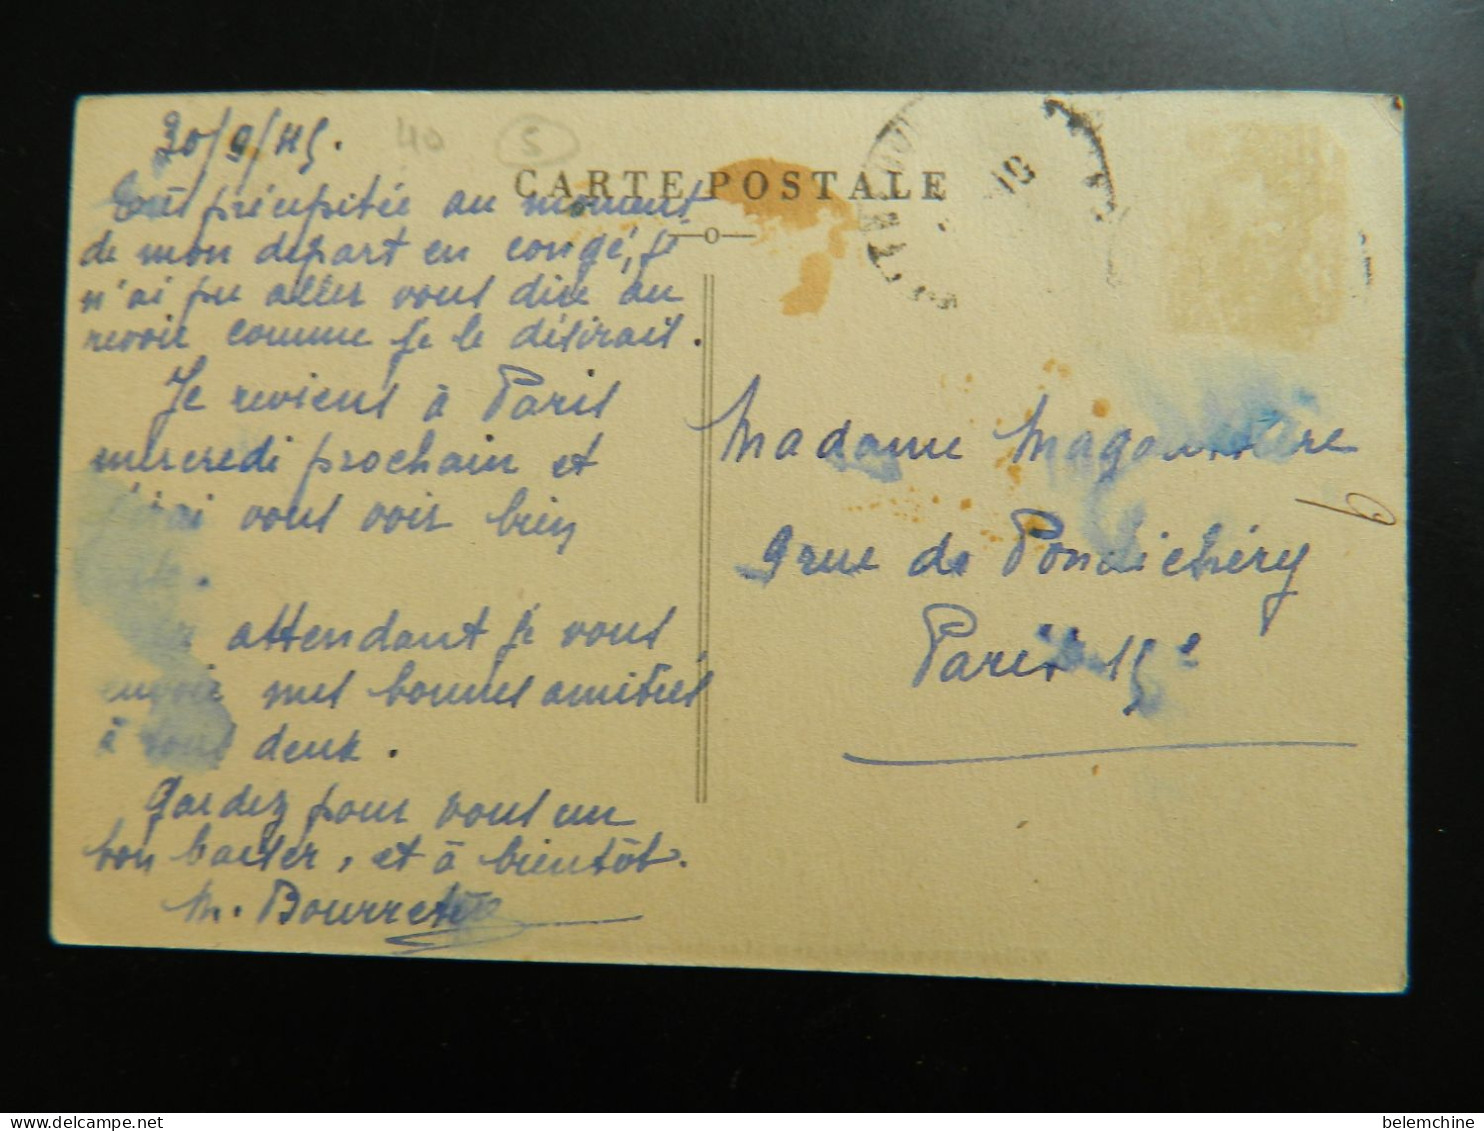 30/9/45.
40
5
CARTE POSTALE
Très précipitée au moment
de mon départ en congé, je
n'ai pu aller vous dire au
revoir comme je le désirais.
Je reviens à Paris
mercredi prochain et
j'irai vous voir bien
attendant je vous
envoie mes bonnes amitiés
à tous deux.
Gardez pour vous un
bon baiser, et à bientôt.
M. Bourret
Madame
9 rue de Pondichéry
Paris 15e
9
belemchine